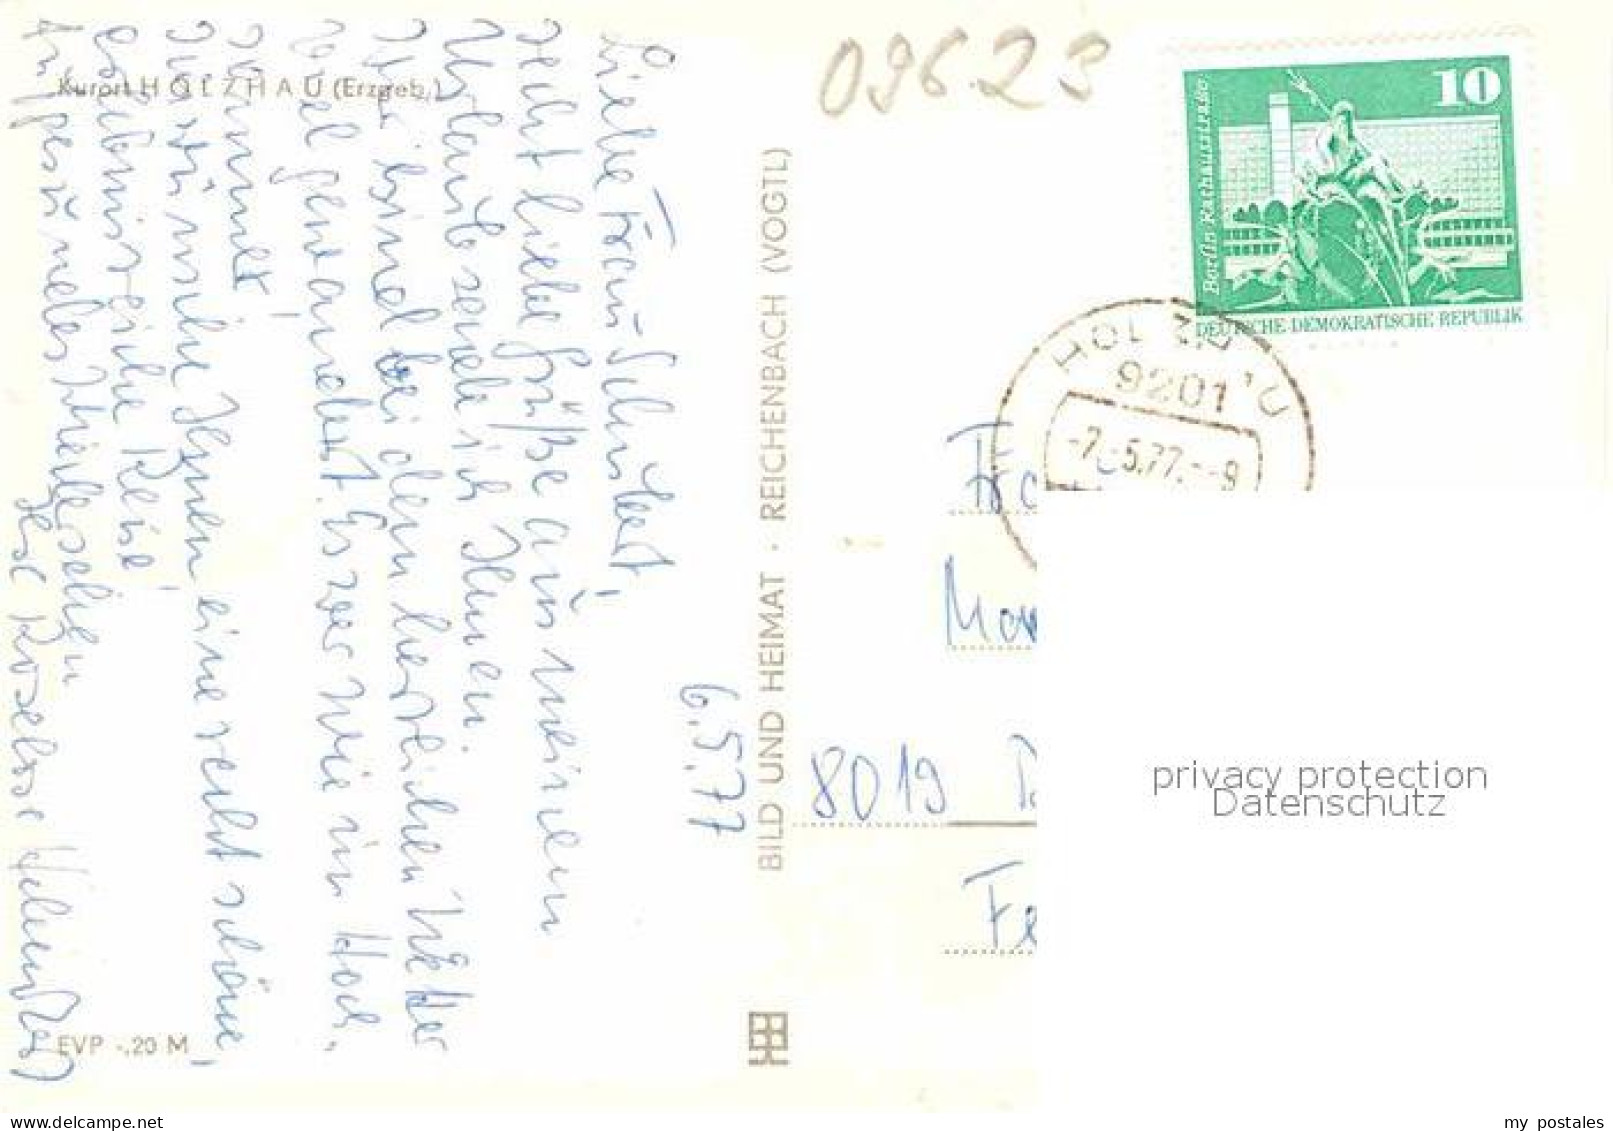 Kurort HOLZHAU (Erzgeb.)
6.5.77
Liebe Frau Schubert,
recht liebe Grüße aus meinem
Urlaub sende ich Ihnen.
Wir sind bei dem herrlichen Wetter
viel gewandert. Es war wie im Hoch-
sommer.
Ich wünsche Ihnen eine recht schöne,
erlebnisreiche Reise
Auf gesundes Wiedersehen
Ihre Roselose
EVP -,20 M
BILD UND HEIMAT · REICHENBACH (VOGTL)
09623
10
Berlin Rathausstraße
DEUTSCHE DEMOKRATISCHE REPUBLIK
HOLZHAU
9201
-7.-5.77.--9
8019
privacy protection
Datenschutz
www.delcampe.net
my_postales